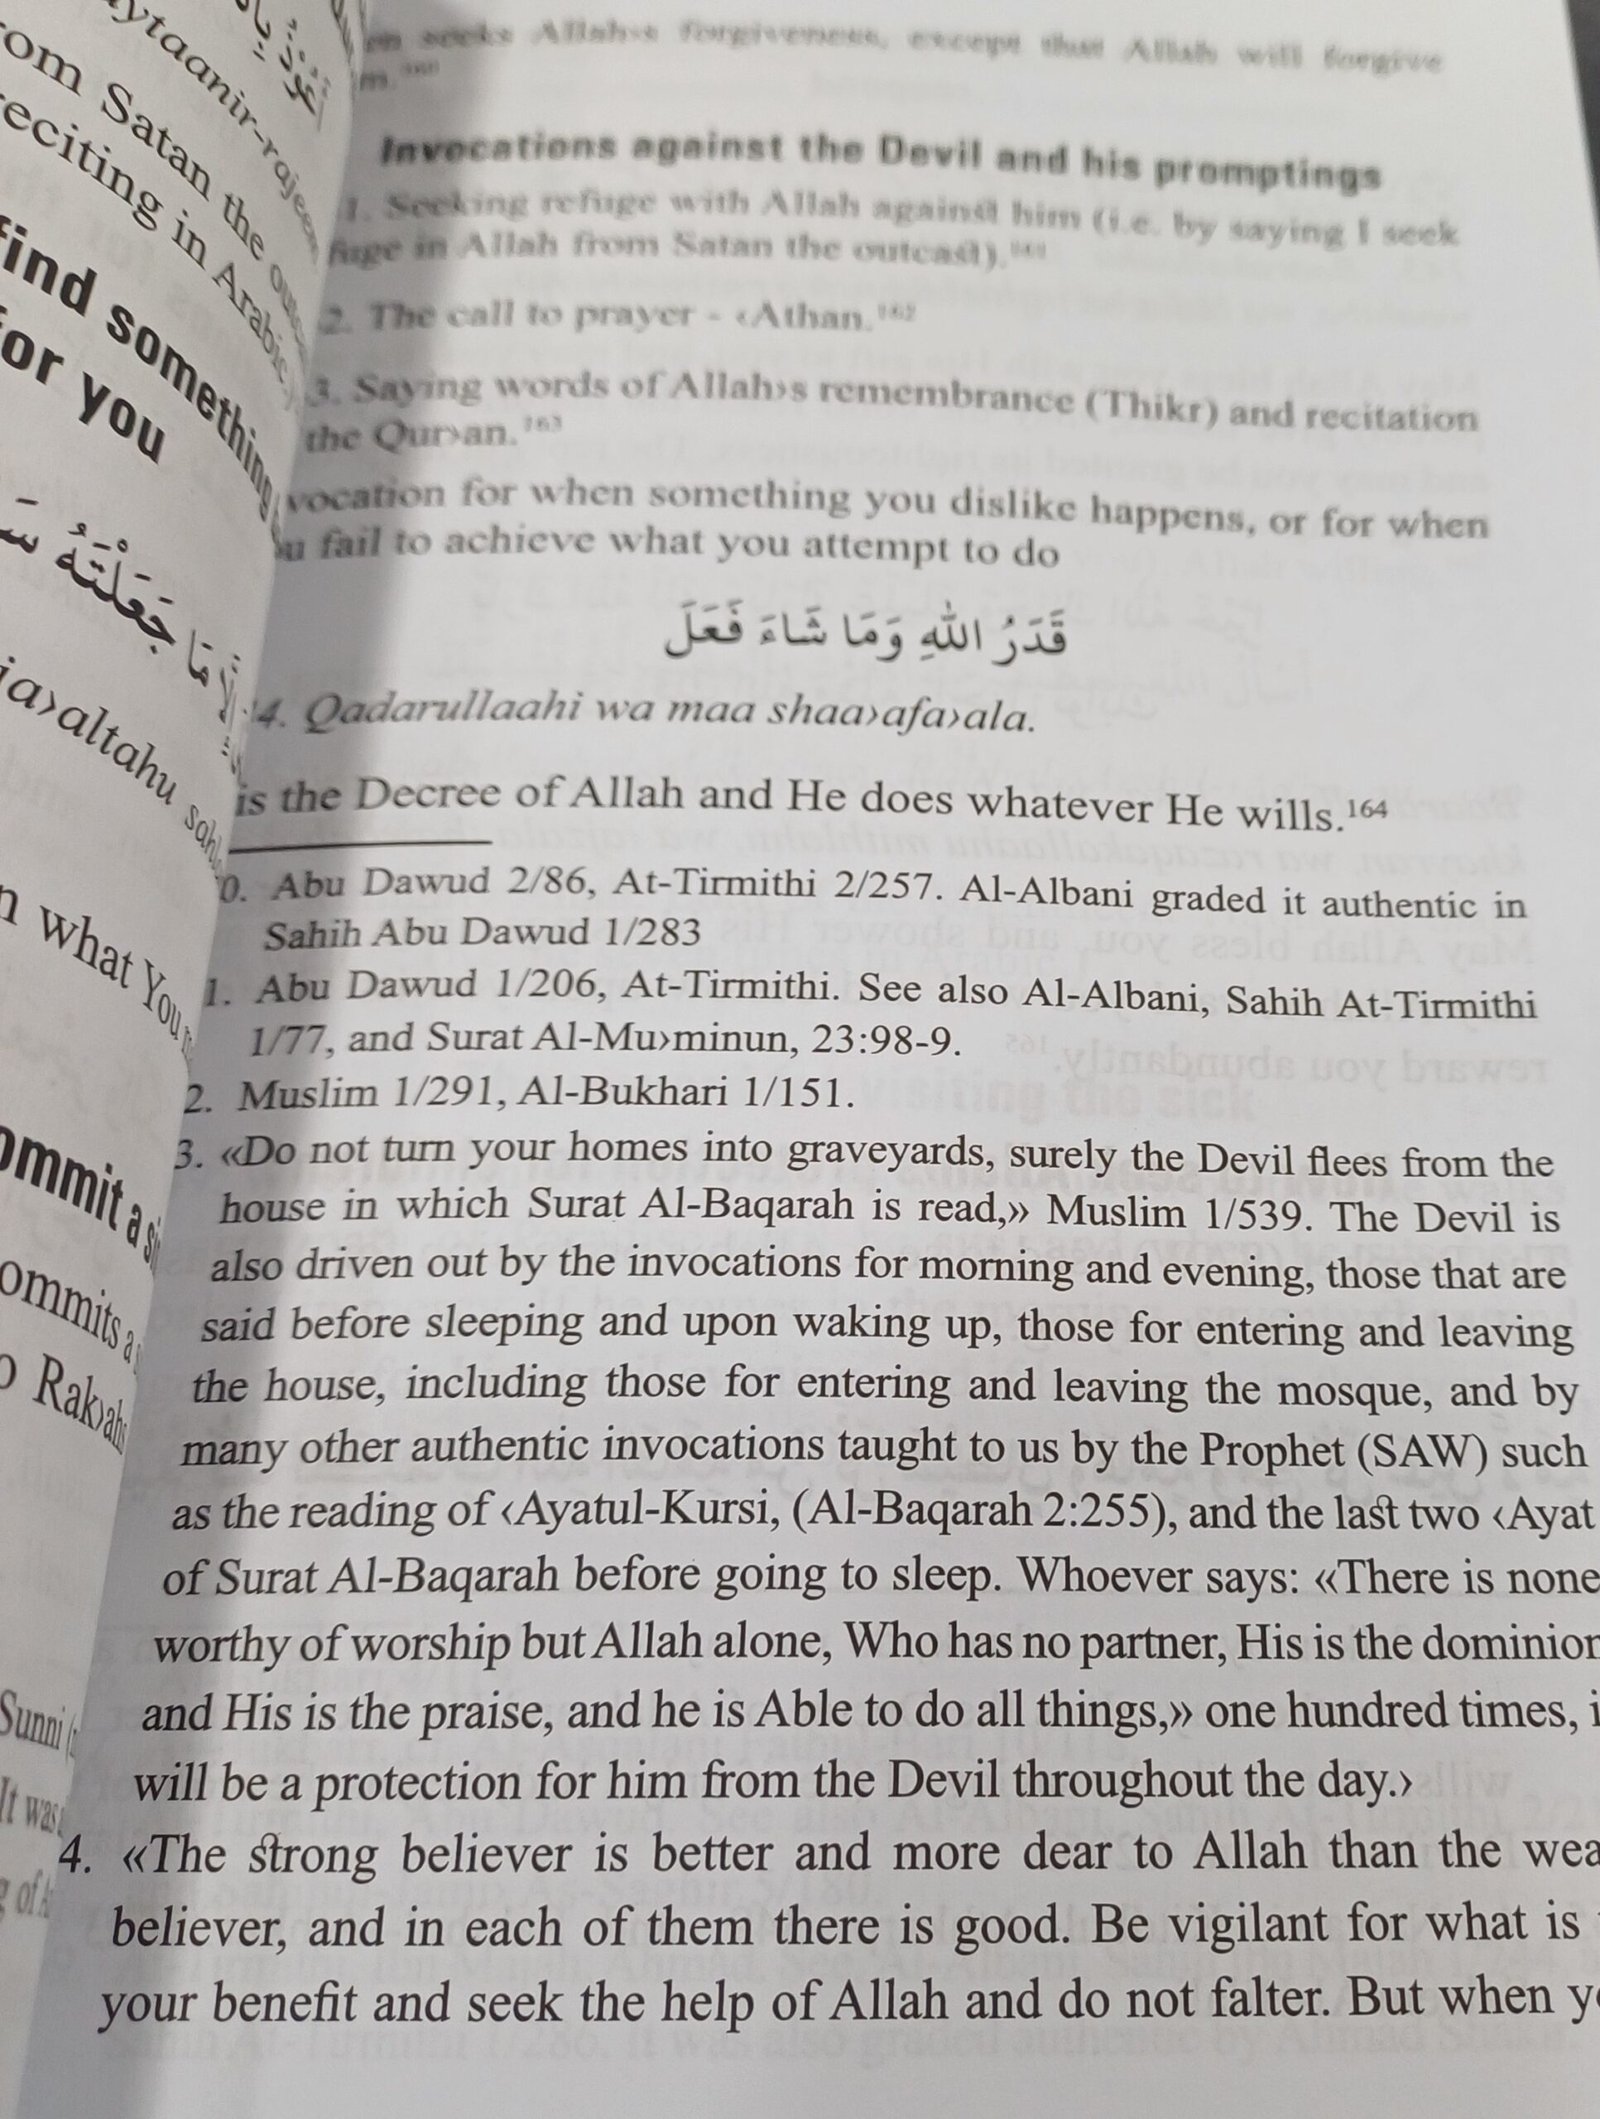 ytaanir-rajeem
om Satan the
eciting in Arabic
find something
for you
مَا جَعَلْتَهُ
ja›altahu
n what You
ommit a
ommits a
o Rak›ahs
Sunni
It was
of
en seeks Allah›s forgiveness, except that Allah will forgive
m.
Invocations against the Devil and his promptings
1. Seeking refuge with Allah against him (i.e. by saying I seek
fuge in Allah from Satan the outcast).161
2. The call to prayer - ‹Athan.162
3. Saying words of Allah›s remembrance (Thikr) and recitation
the Qur›an.163
vocation for when something you dislike happens, or for when
u fail to achieve what you attempt to do
قَدَرُ اللهِ وَمَا شَاءَ فَعَلَ
4. Qadarullaahi wa maa shaa›afa›ala.
is the Decree of Allah and He does whatever He wills.164
0. Abu Dawud 2/86, At-Tirmithi 2/257. Al-Albani graded it authentic in
Sahih Abu Dawud 1/283
1. Abu Dawud 1/206, At-Tirmithi. See also Al-Albani, Sahih At-Tirmithi
1/77, and Surat Al-Mu›minun, 23:98-9.
2. Muslim 1/291, Al-Bukhari 1/151.
3. «Do not turn your homes into graveyards, surely the Devil flees from the
house in which Surat Al-Baqarah is read,» Muslim 1/539. The Devil is
also driven out by the invocations for morning and evening, those that are
said before sleeping and upon waking up, those for entering and leaving
the house, including those for entering and leaving the mosque, and by
many other authentic invocations taught to us by the Prophet (SAW) such
as the reading of ‹Ayatul-Kursi, (Al-Baqarah 2:255), and the last two ‹Ayat
of Surat Al-Baqarah before going to sleep. Whoever says: «There is none
worthy of worship but Allah alone, Who has no partner, His is the dominion
and His is the praise, and he is Able to do all things,» one hundred times, i
will be a protection for him from the Devil throughout the day.›
4. «The strong believer is better and more dear to Allah than the wea
believer, and in each of them there is good. Be vigilant for what is
your benefit and seek the help of Allah and do not falter. But when yo